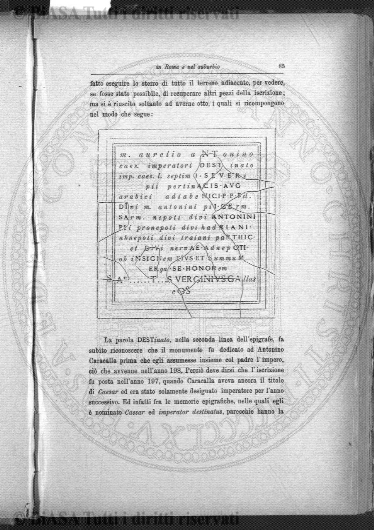 © BIASA Tutti i diritti riservati
in Roma e nel suburbio 65
fatto eseguire lo sterro di tutto il terreno adiacente, per vedere,
se fosse stato possibile, di recuperare altri pezzi della iscrizione;
ma si è riusciti soltanto ad averne otto, i quali si ricompongono
nel modo che segue:
m. aurelio aNTonino
caes. imperatori DEST inato
imp. caes. l. septimi SEVERi
pii pertinACIS AVG
arabici adiabeNICI P P fil.
DIvi m. antonini pii GERm.
SArm. nepoti divi ANTONINI
PII pronepoti divi hadRIANI
abnepoti divi traiani paRTHIC
et DIVI nerVAE ADnepoti
ob iNSIGNem EIVS ET summuM
ERga SE HONOREm
VERGINIVS GAllus
COS
La parola DESTinato, nella seconda linea dell'epigrafe, fa
subito riconoscere che il monumento fu dedicato ad Antonino
Caracalla prima che egli assumesse insieme col padre l'impero,
ciò che avvenne nell'anno 198. Perciò deve dirsi che l'iscrizione
fu posta nell'anno 197, quando Caracalla aveva ancora il titolo
di Caesar ed era stato solamente designato imperatore per l'anno
successivo. Ed infatti fra le memorie epigrafiche, nelle quali egli
è nominato Caesar ed imperator destinatus, parecchie hanno la
© BIASA Tutti i diritti riservati